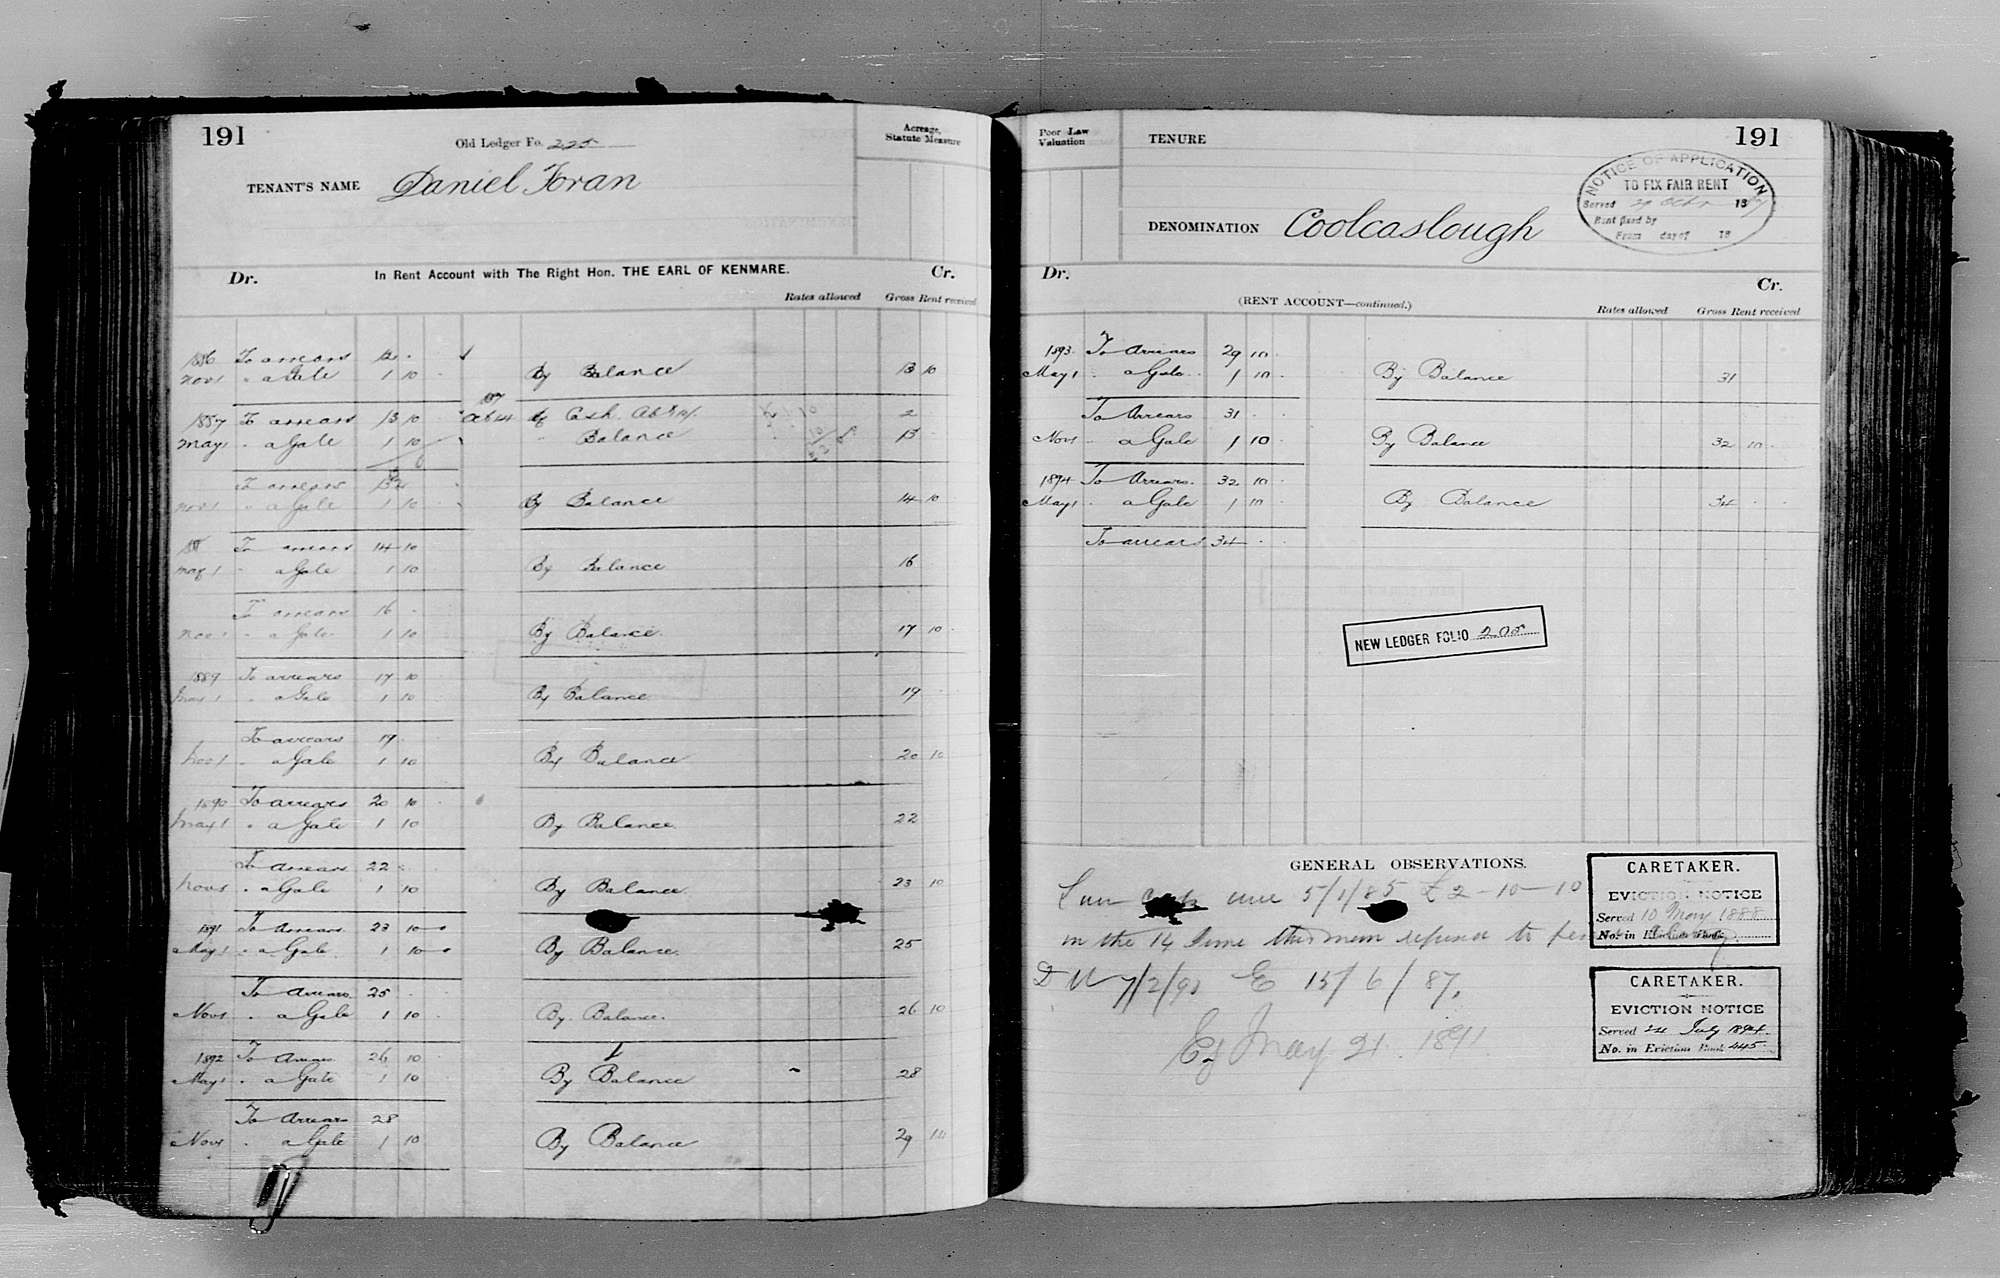 191
Old Ledger Fo. 225
Acreage,
Statute Measure
TENANT'S NAME Daniel Foran
Dr. In Rent Account with The Right Hon. THE EARL OF KENMARE. Cr.
Rates allowed Gross Rent received
1886 To arrears 12 .
Nov 1 " a Gale 1 10 By Balance 13 10
1887 To arrears 13 10 Cash 2
May 1 " a Gale 1 10 Balance 13
To arrears 13
Nov 1 " a Gale 1 10 By Balance 14 10
To arrears 14 10
May 1 " a Gale 1 10 By Balance 16
To arrears 16
Nov 1 " a Gale 1 10 By Balance 17 10
1889 To arrears 17 10
May 1 " a Gale 1 10 By Balance 19
To arrears 19
Nov 1 " a Gale 1 10 By Balance 20 10
1890 To arrears 20 10
May 1 " a Gale 1 10 By Balance 22
To arrears 22
Nov 1 " a Gale 1 10 By Balance 23 10
1891 To Arrears 23 10
May 1 " a Gale 1 10 By Balance. 25
To Arrears 25
Nov 1 " a Gale 1 10 By Balance. 26 10
1892 To Arrears 26 10
May 1 " a Gale 1 10 By Balance 28
To Arrears 28
Nov 1 " a Gale 1 10 By Balance 29 10
Poor Law
Valuation
TENURE
191
NOTICE OF APPLICATION
TO FIX FAIR RENT
Served 29 Octr 1887
Rent fixed by
From day of 18
DENOMINATION Coolcaslough
Dr. Cr.
(RENT ACCOUNT—continued.)
Rates allowed Gross Rent received
1893 To Arrears 29 10
May 1 " a Gale 1 10 By Balance 31
To Arrears 31
Nov 1 " a Gale 1 10 By Balance 32 10
1894 To Arrears 32 10
May 1 " a Gale 1 10 By Balance 34
To arrears 34
NEW LEDGER FOLIO 205
GENERAL OBSERVATIONS.
5/1/85 £2-10-10
on the 14 June this man refused to
7/2/90 E 15/6/87.
Ey May 21. 1891
CARETAKER.
EVICTION NOTICE
Served 10 May 1888
No. in Eviction Book
CARETAKER.
EVICTION NOTICE
Served 24 July 1894.
No. in Eviction Book 445